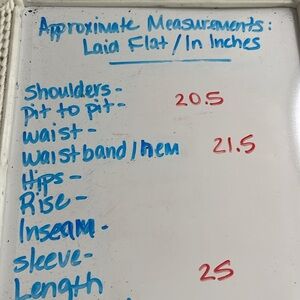 Approximate Measurements:
Laid Flat/In Inches
Shoulders-
pit to pit- 20.5
waist-
waistband/hem 21.5
Hips-
Rise-
Inseam-
sleeve-
Length 25